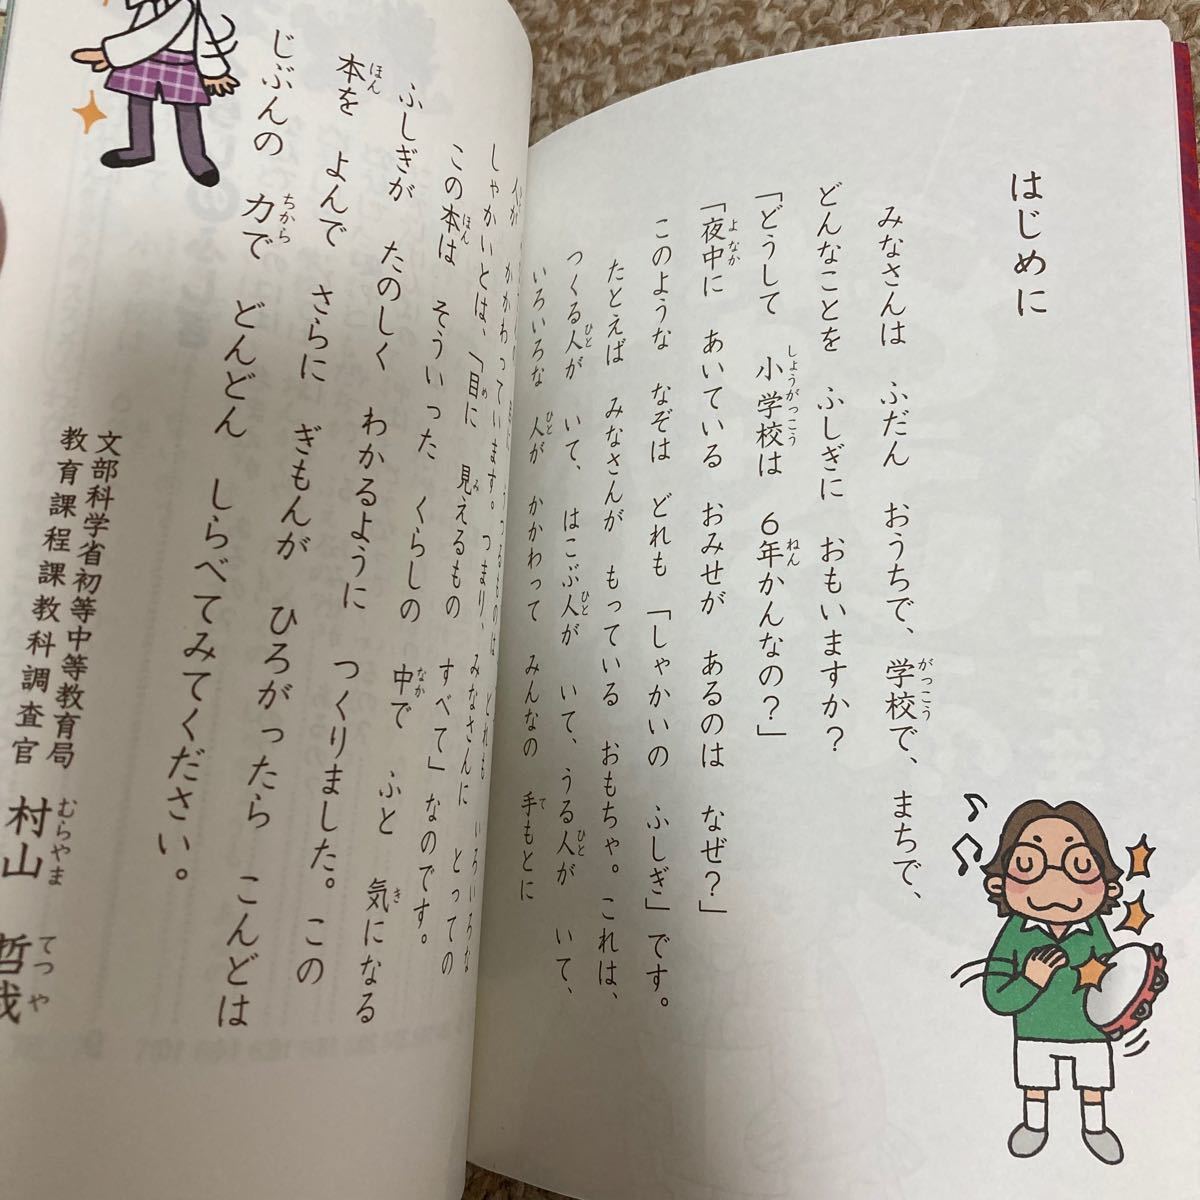 はじめに
みなさんは ふだん おうちで、学校で、まちで、
どんなことを ふしぎに おもいますか?
「どうして 小学校は 6年かんなの?」
「夜中に あいている おみせが あるのは なぜ?」
このような なぞは どれも 「しゃかいの ふしぎ」です。
たとえば みなさんが もっている おもちゃ。これは、
つくる人が いて、はこぶ人が いて、うる人が いて、
いろいろな 人が かかわって みんなの 手もとに
どれも いろいろな
人が かかわっています。つまり、みなさんに とっての
しゃかいとは、「目に 見えるもの すべて」なのです。
この本は そういった くらしの 中で ふと 気になる
ふしぎが たのしく わかるように つくりました。この
本を よんで さらに ぎもんが ひろがったら こんどは
じぶんの 力で どんどん しらべてみてください。
文部科学省初等中等教育局
教育課程課教科調査官 村山 哲哉